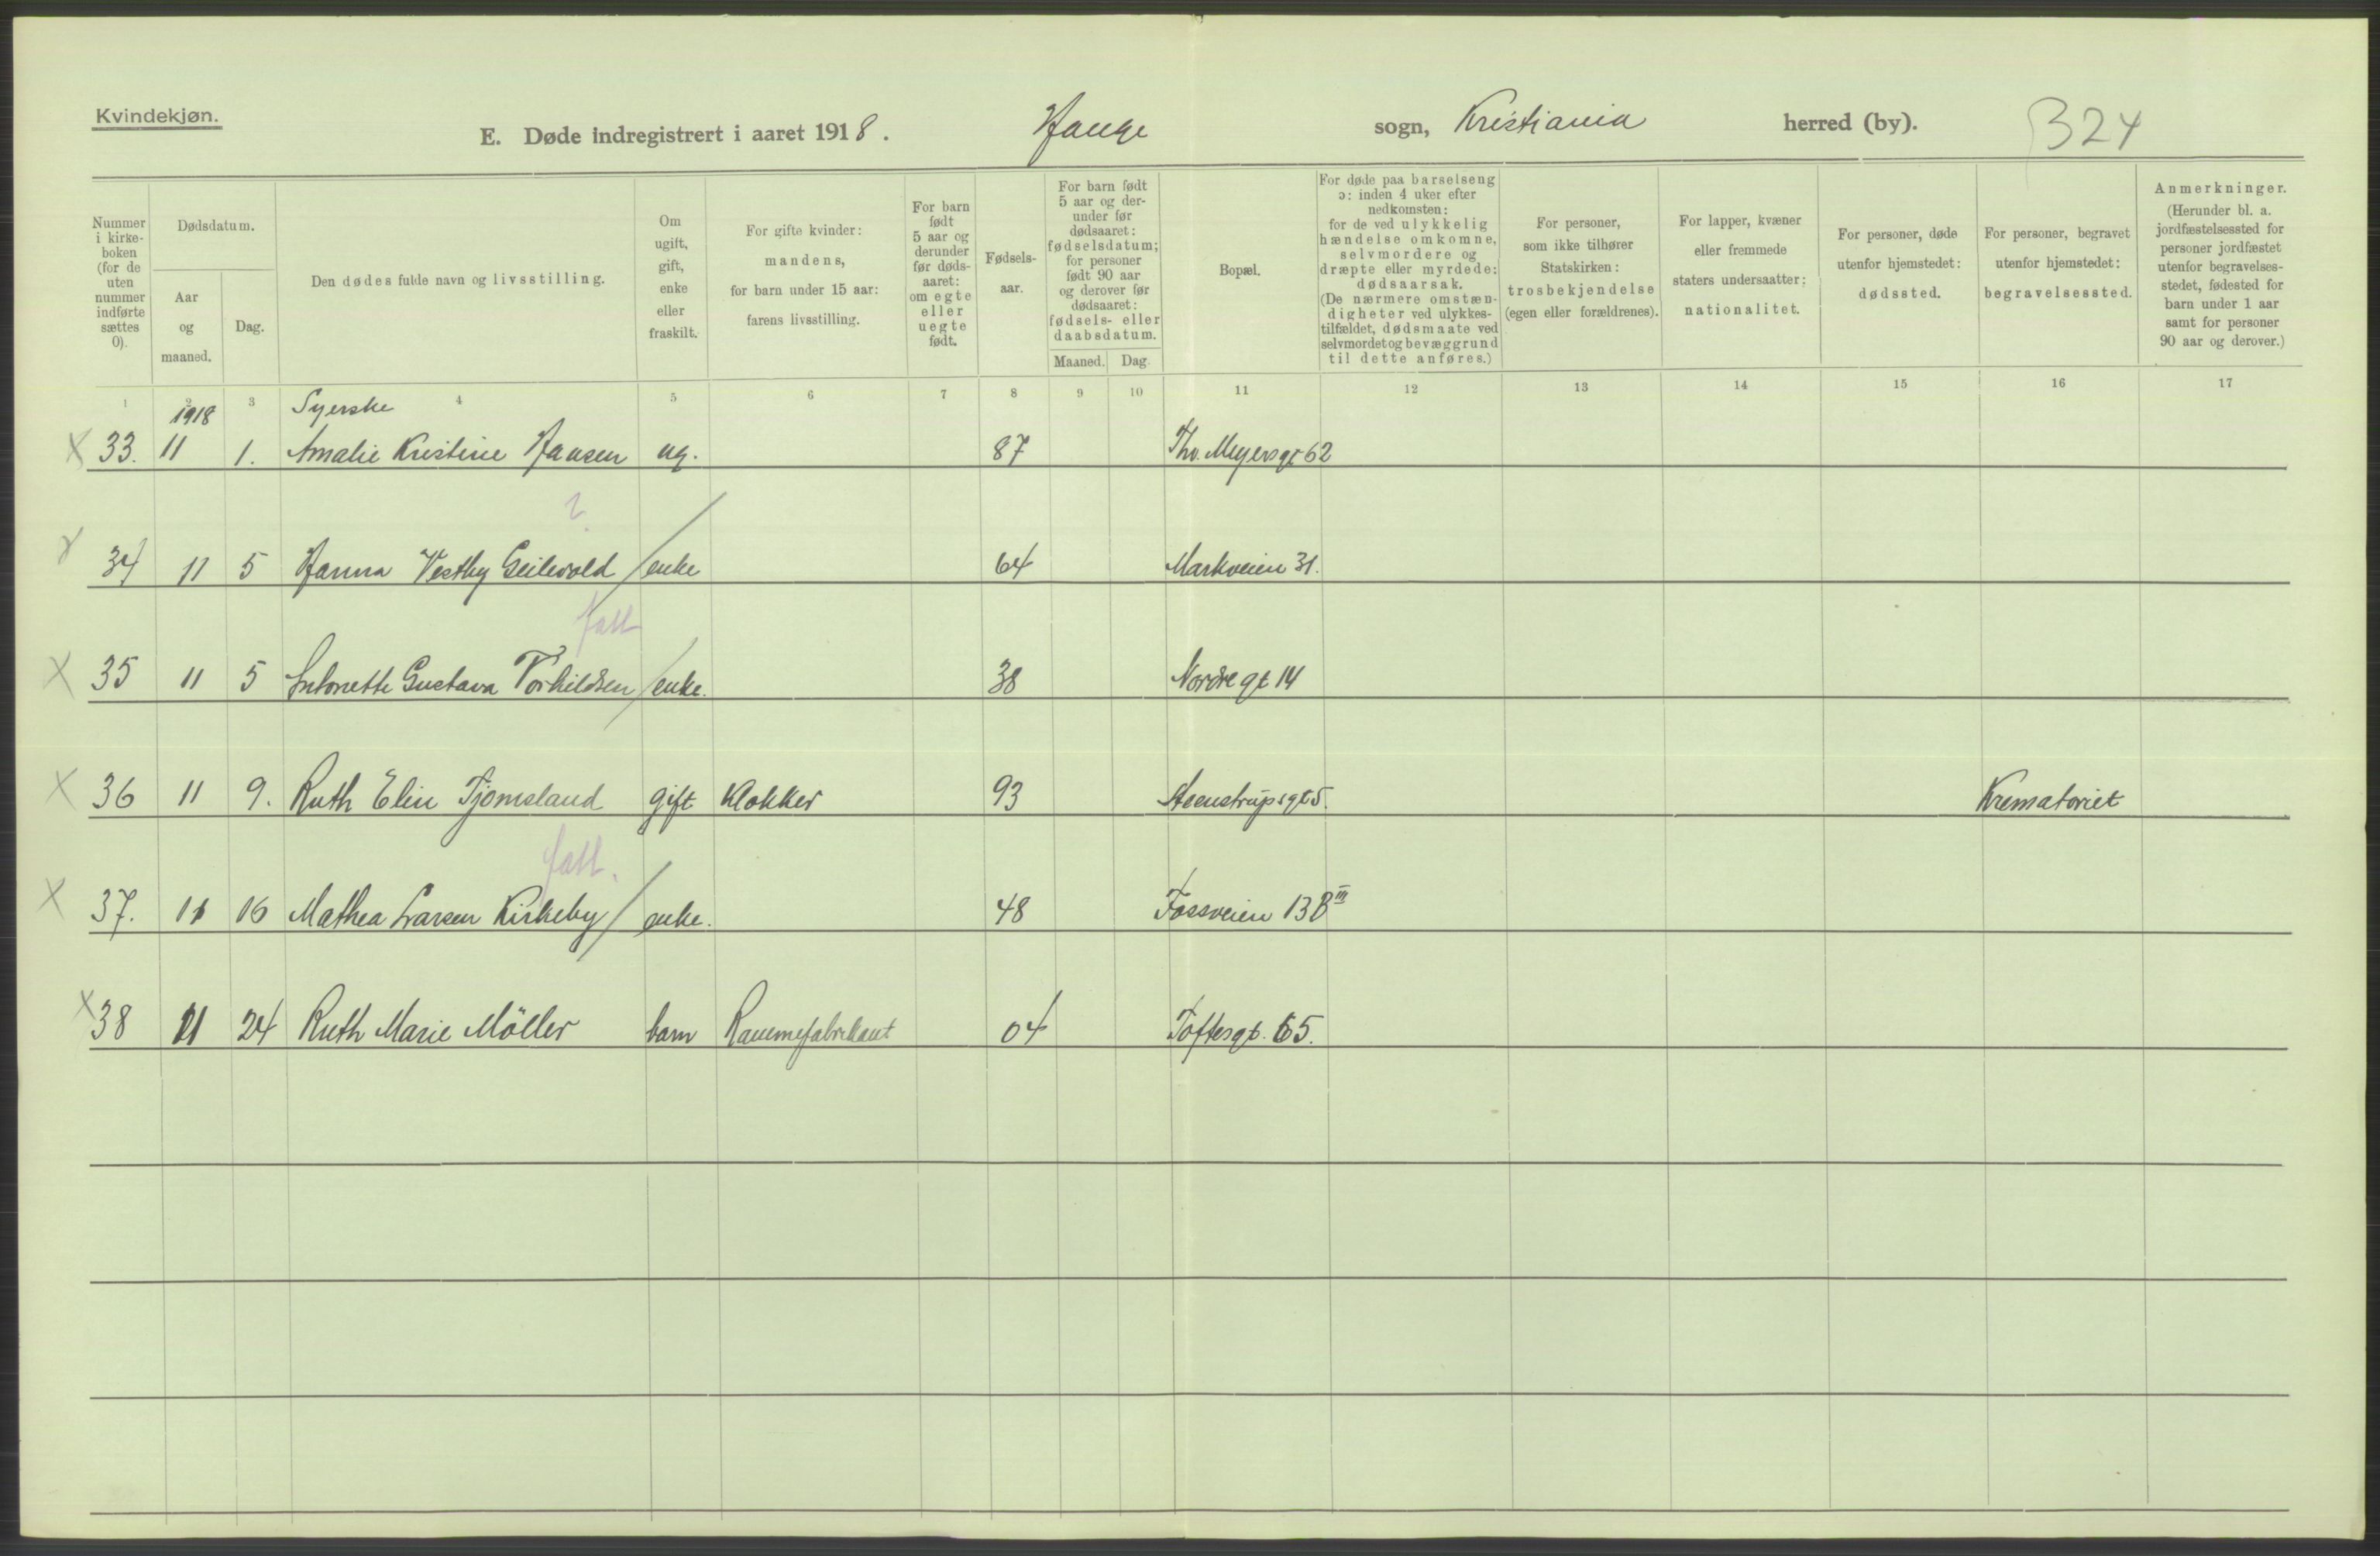 Kvindekjøn.
E. Døde indregistrert i aaret 1918. Hauge sogn, Kristiania herred (by). 324
Nummer i kirke-boken (for de uten nummer indførte sættes 0).
Dødsdatum.
Aar og maaned.
Dag.
Den dødes fulde navn og livsstilling.
Om ugift, gift, enke eller fraskilt.
For gifte kvinder: mandens, for barn under 15 aar: farens livsstilling.
For barn født 5 aar og derunder før døds-aaret: om egte eller uegte født.
Fødsels-aar.
For barn født 5 aar og der-under før dødsaaret: fødselsdatum; for personer født 90 aar og derover før dødsaaret: fødsels- eller daabsdatum.
Maaned. Dag.
Bopæl.
For døde paa barselseng ɔ: inden 4 uker efter nedkomsten: for de ved ulykkelig hændelse omkomne, selvmordere og dræpte eller myrdede: dødsaarsak. (De nærmere omstæn-digheter ved ulykkes-tilfældet, dødsmaate ved selvmordet og bevæggrund til dette anføres.)
For personer, som ikke tilhører Statskirken: trosbekjendelse (egen eller forældrenes).
For lapper, kvæner eller fremmede staters undersaatter: nationalitet.
For personer, døde utenfor hjemstedet: dødssted.
For personer, begravet utenfor hjemstedet: begravelsessted.
Anmerkninger. (Herunder bl. a. jordfæstelsessted for personer jordfæstet utenfor begravelses-stedet, fødested for barn under 1 aar samt for personer 90 aar og derover.)
1 2 3 4 5 6 7 8 9 10 11 12 13 14 15 16 17
1918 Syerske
X 33. 11 1. Amalie Kristine Hansen ug. 87 Thv. Meyersgt 62
?
X 34 11 5 Hanna Vestby Geilvold / enke 64 Markveien 31.
fatt
X 35 11 5 Antonette Gustava Torkildsen / enke. 38 Nordre gt 14
X 36 11 9. Ruth Elin Tjomsland gift Klokker 93 Steenstrupsgt 5. Krematoriet
fatt.
X 37. 11 16 Mathea Larsen Kirkeby / enke. 48 Fossveien 13 B III
X 38 11 24 Ruth Marie Möller barn Rammefabrikant 04 Toftesgt. 65.